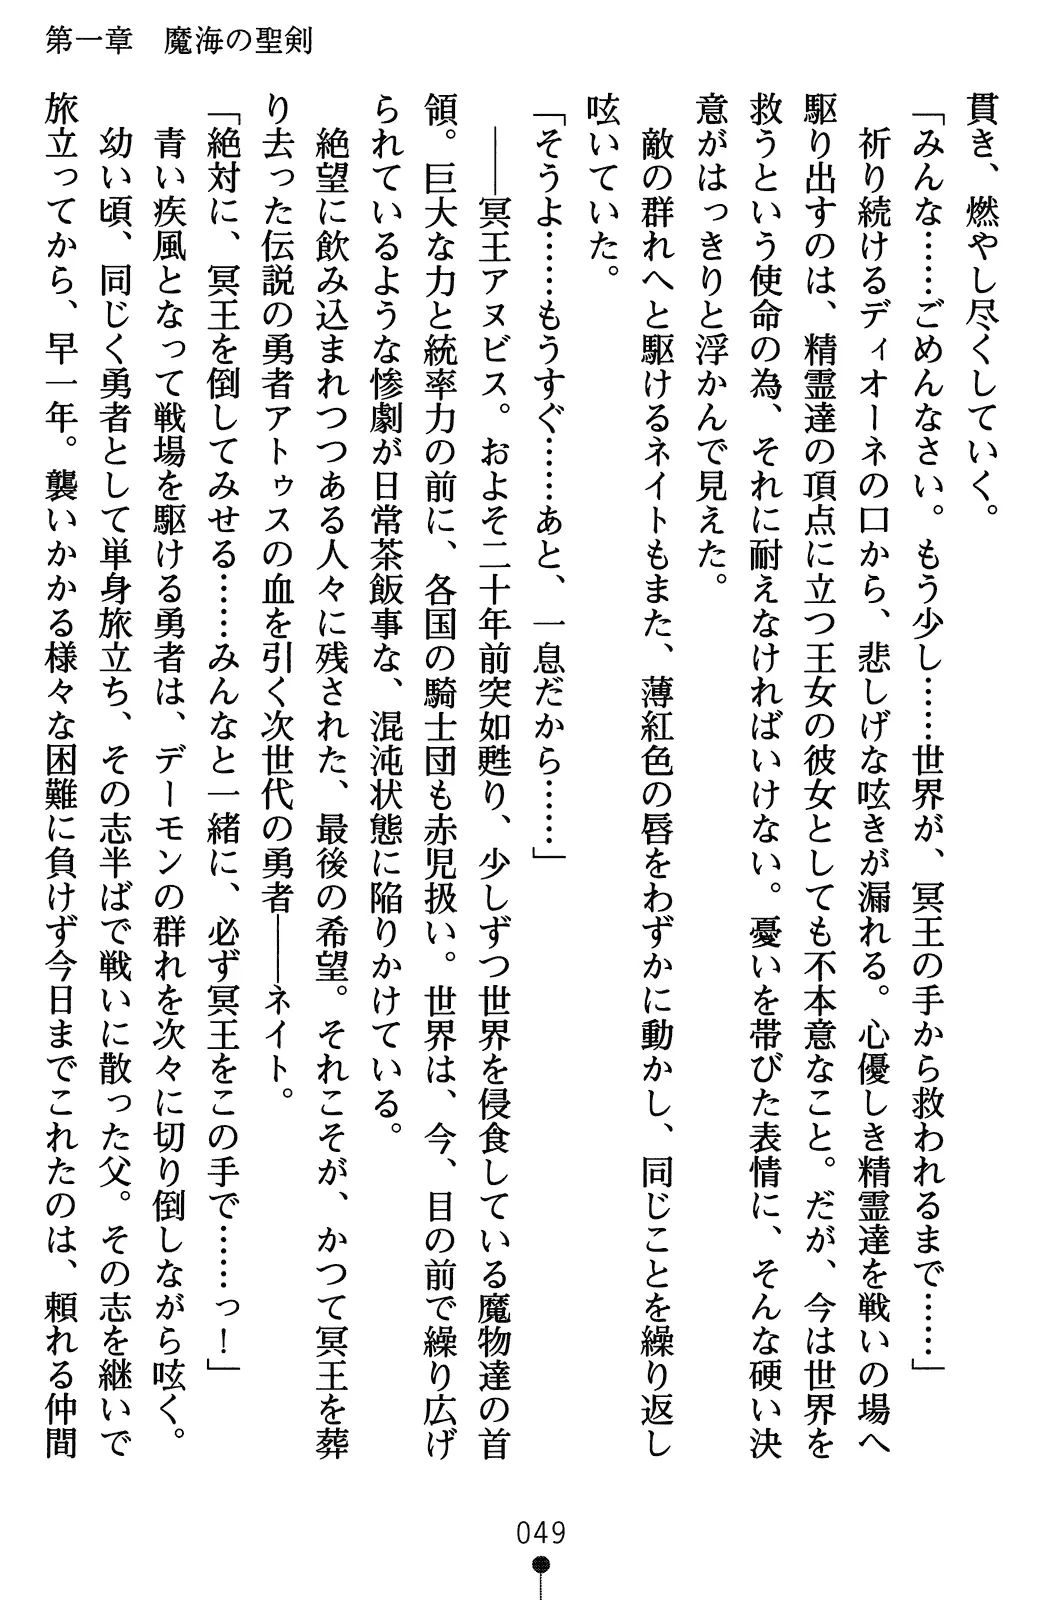 第一章　魔海の聖剣
貫き、燃やし尽くしていく。
「みんな……ごめんなさい。もう少し……世界が、冥王の手から救われるまで……」
　祈り続けるディオーネの口から、悲しげな呟きが漏れる。心優しき精霊達を戦いの場へ
駆り出すのは、精霊達の頂点に立つ王女の彼女としても不本意なこと。だが、今は世界を
救うという使命の為、それに耐えなければいけない。憂いを帯びた表情に、そんな硬い決
意がはっきりと浮かんで見えた。
　敵の群れへと駆けるネイトもまた、薄紅色の唇をわずかに動かし、同じことを繰り返し
呟いていた。
「そうよ……もうすぐ……あと、一息だから……」
　――冥王アヌビス。およそ二十年前突如甦り、少しずつ世界を侵食している魔物達の首
領。巨大な力と統率力の前に、各国の騎士団も赤児扱い。世界は、今、目の前で繰り広げ
られているような惨劇が日常茶飯事な、混沌状態に陥りかけている。
　絶望に飲み込まれつつある人々に残された、最後の希望。それこそが、かつて冥王を葬
り去った伝説の勇者アトゥスの血を引く次世代の勇者――ネイト。
「絶対に、冥王を倒してみせる……みんなと一緒に、必ず冥王をこの手で……っ！」
　青い疾風となって戦場を駆ける勇者は、デーモンの群れを次々に切り倒しながら呟く。
　幼い頃、同じく勇者として単身旅立ち、その志半ばで戦いに散った父。その志を継いで
旅立ってから、早一年。襲いかかる様々な困難に負けず今日までこれたのは、頼れる仲間
049